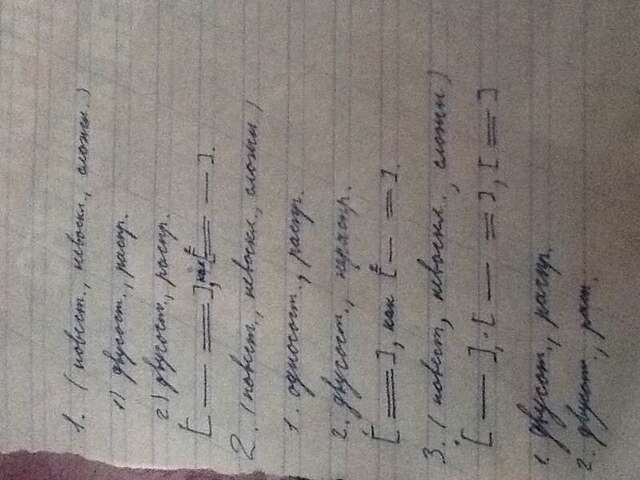 1. (повест., невоскл., сложн.)
1) двусост., распр.
2) двусост., распр.
[— =], как [= —].
2. (повест., невоскл., сложн)
1. односост., распр.
2. двусост., нераспр.
[=], как [— =].
3. (повест, невоскл., сложн)
[—], [— =], [=]
1. двусост., распр.
2. двусост.,